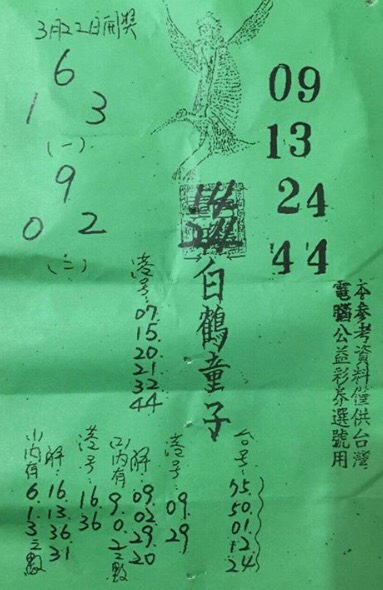 3月22日開獎
6
1 3
(一)
9
0 2
(二)
09
13
24
44
14
24
白鶴童子
本參考資料僅供台灣
電腦公益彩券選號用
港号:
07
15
20
21
32
44
台号:
75.
50.
01.
12.
24
港号:
09
29
解:
09
02
29
20
(二)內有
9.
0.
2之數
港号:
16
36
解:
16.
13
36
31
(一)內有
6.
1.
3之數